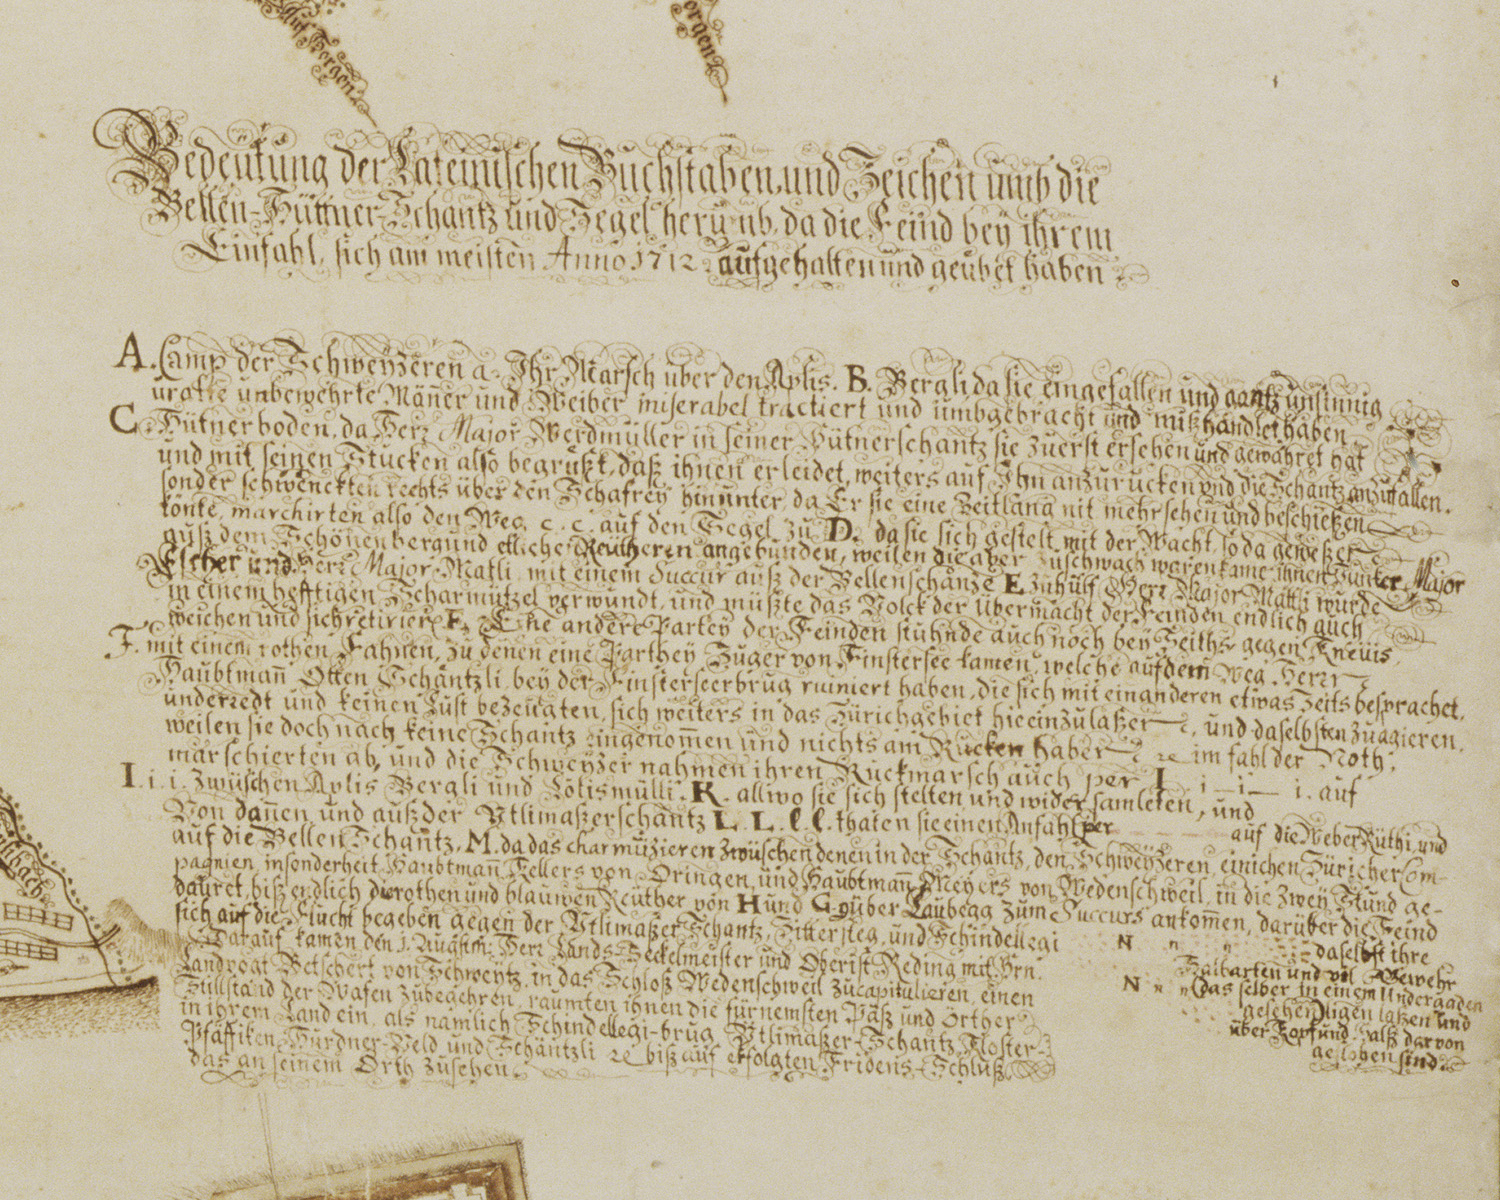 auf Bergen
Bergen
Bedeutung der Lateinischen Buchstaben, und Zeichen umb die
Bellen-Hüttner-Schantz und Segel herumb, da die Feind bey ihrem
Einfahl, sich am meisten Anno 1712. aufgehalten und geübet haben
A. Camp der Schweyzeren a. Ihr Marsch über den Aplis. B. Bergli da sie eingefallen und gantz unsinnig
uralte unbewehrte Mäner und Weiber miserabel tractiert und umbgebracht und mißhandlet haben.
C Hütnerboden, da Herr Major Werdmüller in seiner Hütnerschantz sie zuerst ersehen und gewahret hat
und mit seinen Stucken also begrüßt, daß ihnen erleidet, weiters auf Ihn anzurucken und die Schantz anzufallen.
sonder schwenckten rechts über den Schafrey hinunter, da Er sie eine Zeitlang nit mehr sehen und beschießen
konte, marchirten also den Weg c. c. auf den Segel zu D. da sie sich gestelt mit der Wacht, so da geweßer
auß dem Schönenberg und etliche Reütheren angebunden, weilen die aber zuschwach waren kame ihnen Junker Major
Escher und Herr Major Matli mit einem Succur auß der Bellenschanze E zuhülf Herr Major Matli wurde
in einem hefftigen Scharmützel verwundt, und müßte das Volck der Übermacht der Feinden endlich auch
weichen und sich retirier F. Eine andere Partey der Feinden stuhnde auch noch bey Seiths gegen Kneüis
F. mit einem rothen Fahnen, zu denen eine Parthey Zuger von Finstersee kamen, welche auf dem Weg Herr
Haubtmañ Otten Schäntzli bey der Finsterseerbrug ruiniert haben, die sich mit einanderen etwas Zeits besprachet,
underredt und keinen Lust bezeugten, sich weiters in das Zürichgebiet hieeinzulaßer, und daselbsten zuagieren.
weilen sie doch nach keine Schantz eingenom̄en und nichts am Rucken haber im fahl der Noth,
marschierten ab, und die Schweyzer nahmen ihren Ruckmarsch auch per I i i i. auf
I. i. i. zwüschen Aplis Bergli und Lölismülli. K. allwo sie sich stelten und wider samleten, und
Von dañen und auß der Ütlimaßerschantz L. L. l. l. thaten sie einen Anfahl per auf die Weber Rüthi, und
auf die Bellen Schantz. M. da das charmüzieren zwüschen denen in der Schantz, den Schweyzeren, einichen Züricher Com-
pagnien, insonderheit Haubtmañ Kellers von Oringen, und Haubtmañ Meyers von Wedenschweil, in die zwey Stund ge-
dauret, biß endlich die rothen und blauwen Reüther von H und G über Laubegg zum Succurs ankom̄en, darüber die Feind
sich auf die Flucht begeben gegen der Ütlimaßer Schantz, Sittersteg, und Schindellegi N " " daselbst ihre
Darauf kamen den 1. Augstm: Herr Lands-Seckelmeister und Oberist Reding mit Hrn. Halbarten und vil Gewehr
Landvogt Betschert von Schweytz, in das Schloß Wedenschweil zucapitulieren, einen N " " das selber in einem Undergaden
Stillstand der Wafen zubegehren, raumten ihnen die fürnemsten Päß und Örther geschen, ligen laßen und
in ihrem Land ein, als namlich Schindellegi-brug, Ütlimaßer-Schantz, Kloster- über Kopf und Halß darvon
Pfäffiken, Hurdner-Veld und Schäntzli ec biß auf erfolgten Fridens-Schluß. geflohen sind.
das an seinem Orth zusehen.